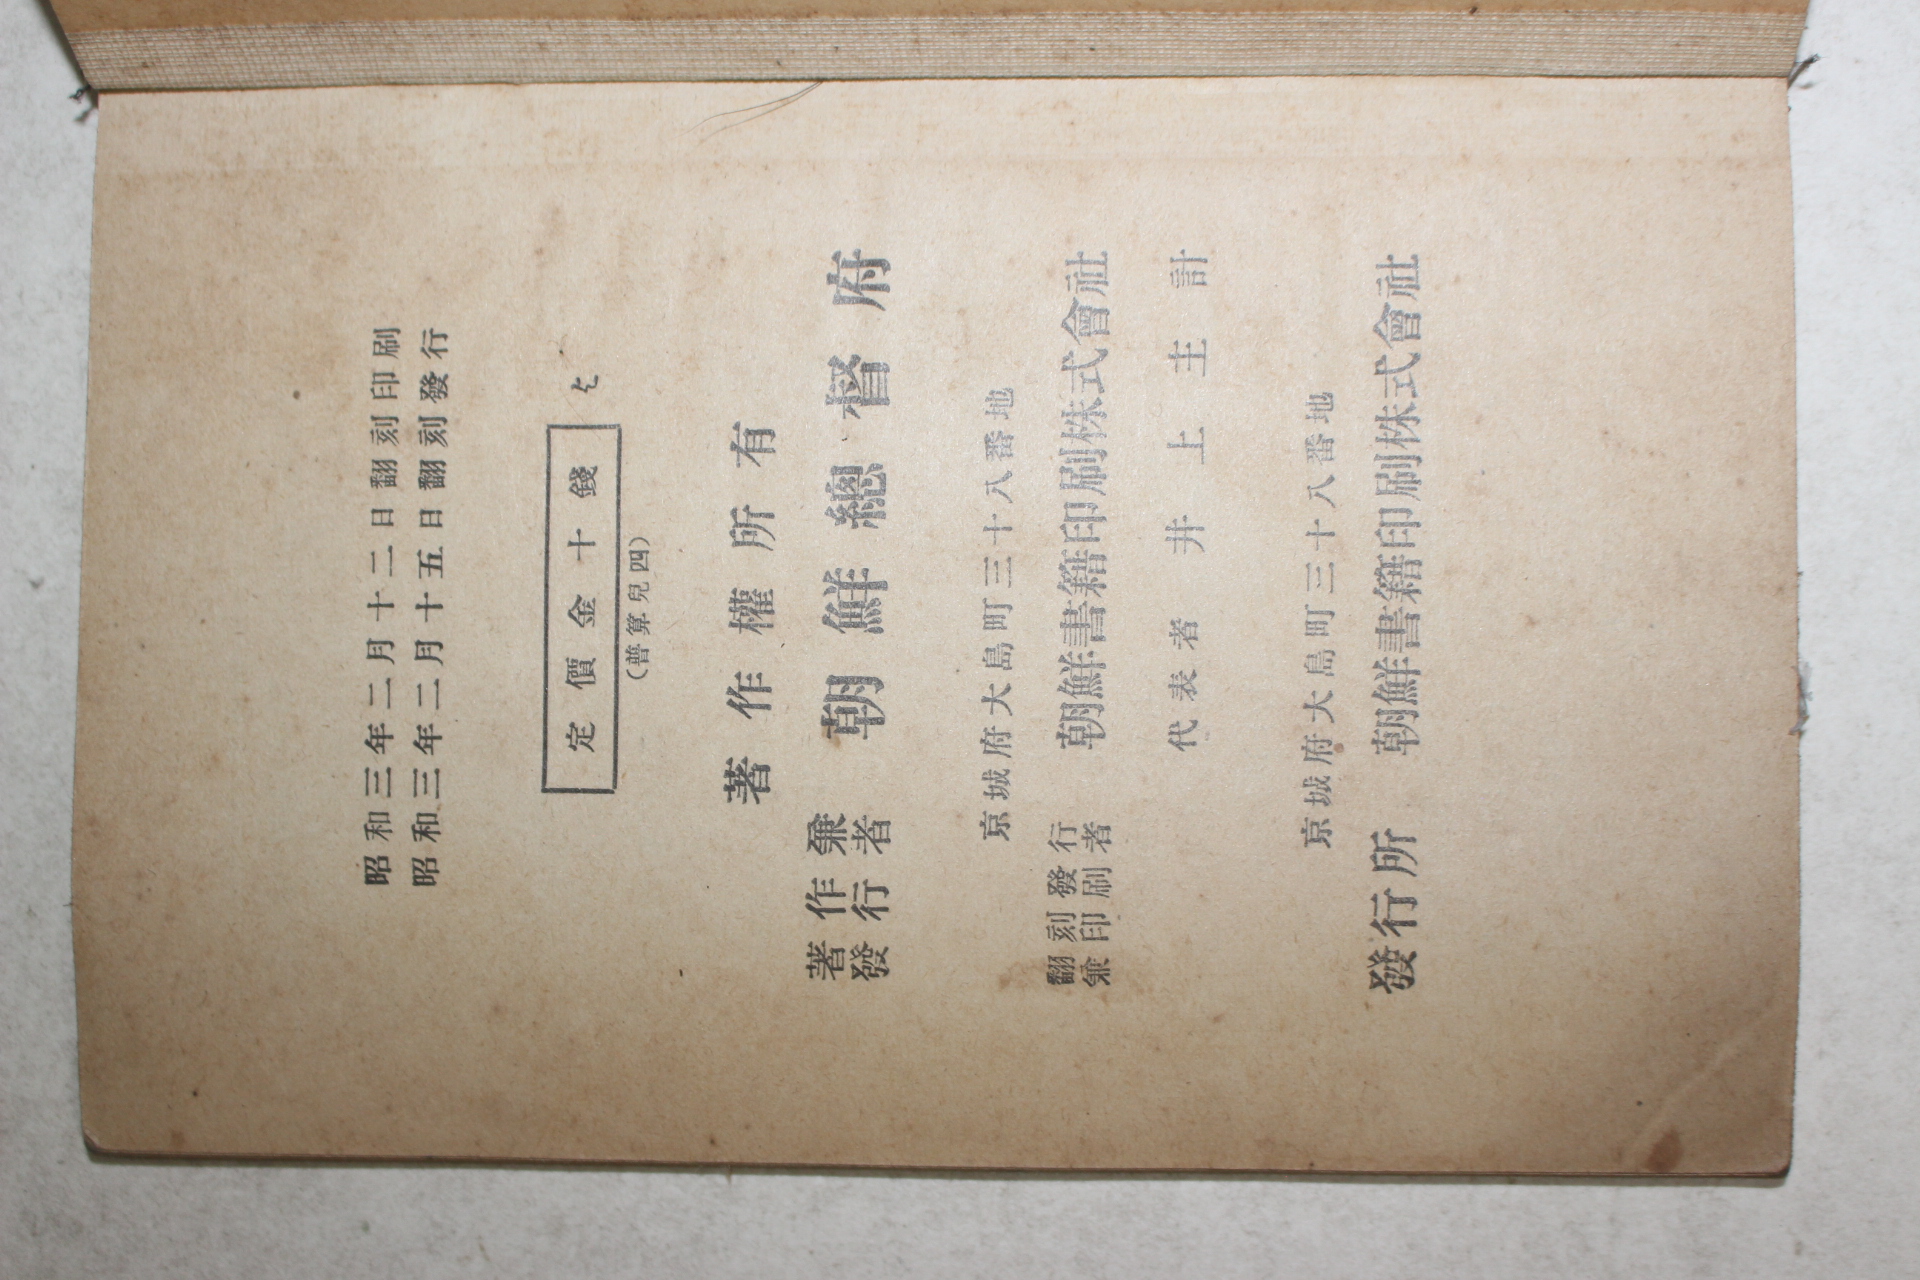 昭和三年二月十二日翻刻印刷
昭和三年二月十五日翻刻發行
定價金十錢
(普算兒四)
著作權所有
著作兼
發行者
朝鮮總督府
京城府大島町三十八番地
翻刻發行
兼印刷者
朝鮮書籍印刷株式會社
代表者 井上主計
京城府大島町三十八番地
發行所 朝鮮書籍印刷株式會社